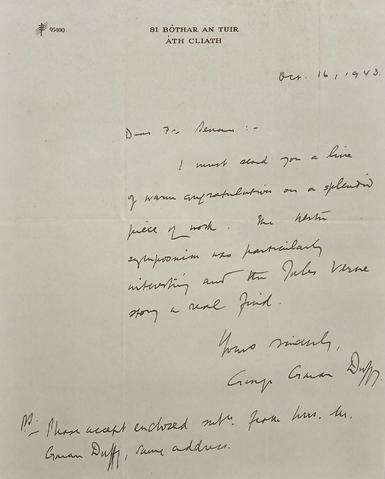 95190
81 BÓTHAR AN TUIR
ÁTH CLIATH
Oct. 16, 1943.
Dear Fr. Senan :-
I must send you a line
of warm congratulation on a splendid
piece of work. The
symposium was particularly
interesting and the Jules Verne
story a real find.
Yours sincerely,
George Gavan Duffy.
PS:- Please accept enclosed subn. from Mrs.
Gavan Duffy, same address.